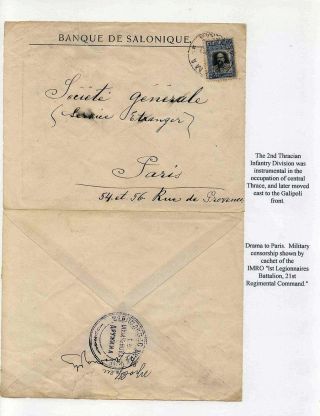 BANQUE DE SALONIQUE.
Société Générale
(Service Etranger)
Paris
54 et 56 Rue de Provence
The 2nd Thracian
Infantry Division was
instrumental in the
occupation of central
Thrace, and later moved
east to the Galipoli
front.
Drama to Paris. Military
censorship shown by
cachet of the
IMRO "Ist Legionnaires
Battalion, 21st
Regimental Command."
ДРУЖИНА